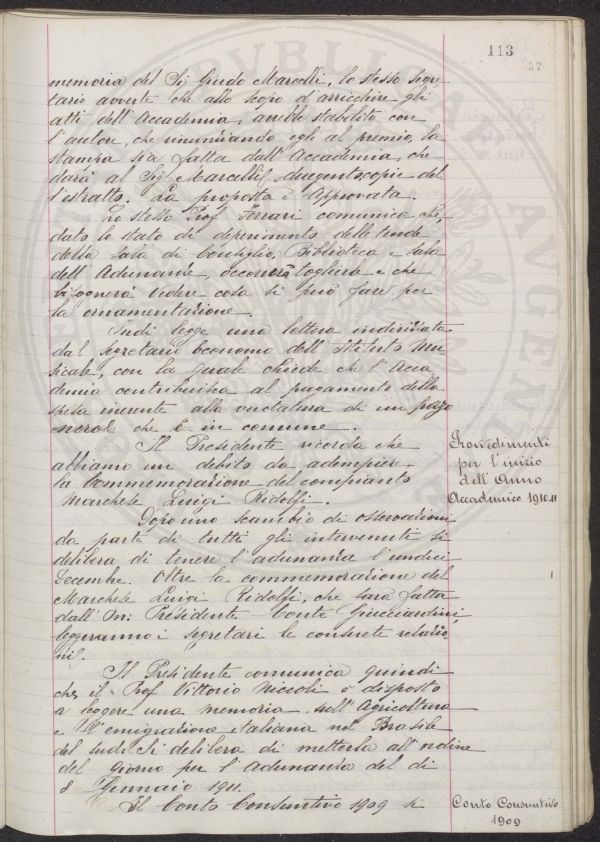 113
37
memoria del Sig Guido Marcelli, lo stesso segre
tario avverte che allo scopo d'arricchire gli
atti dell'Accademia, avrebbe stabilito con
l'autore, che rinunziando egli al premio, la
stampa sia fatta dall'Accademia, che
darà al Sig Marcelli duegento copie del
l'estratto. La proposta è approvata.
Lo stesso Prof Ferrari comunica che,
dato lo stato di deperimento delle tende
della sala di Consiglio, Biblioteca e Sala
dell'Adunanze, occorrerà toglierle e che
bisognerà vedere cosa si può fare per
la ornamentazione.
Indi legge una lettera indirizzata
dal Segretario Economo dell'Istituto Mu
sicale, con la quale chiede che l'Acca
demia contribuisca al pagamento della
spesa inerente alla vuotatura di un pozzo
nero che è in comune.
Il Presidente ricorda che
abbiamo un debito da adempiere,
la Commemorazione del compianto
Marchese Luigi Ridolfi.
Provvedimenti
per l'inizio
dell'Anno
Accademico 1910-11
Dopo uno scambio di osservazioni
da parte di tutti gli intervenuti si
delibera di tenere l'adunanza l'undici
Decembre. Oltre la commemorazione del
Marchese Luigi Ridolfi, che sarà fatta
dall'On: Presidente Conte Guicciardini,
leggeranno i segretari le consuete relazio
ni.
Il Presidente comunica quindi
che il Prof Vittorio Niccoli è disposto
a leggere una memoria sull'Agricoltura
e l'emigrazione italiana nel Brasile
del sud. Si delibera di metterla all'ordine
del giorno per l'Adunanza del dì
8 Gennaio 1911.
Il Conto Consuntivo 1909 si
Conto Consuntivo
1909